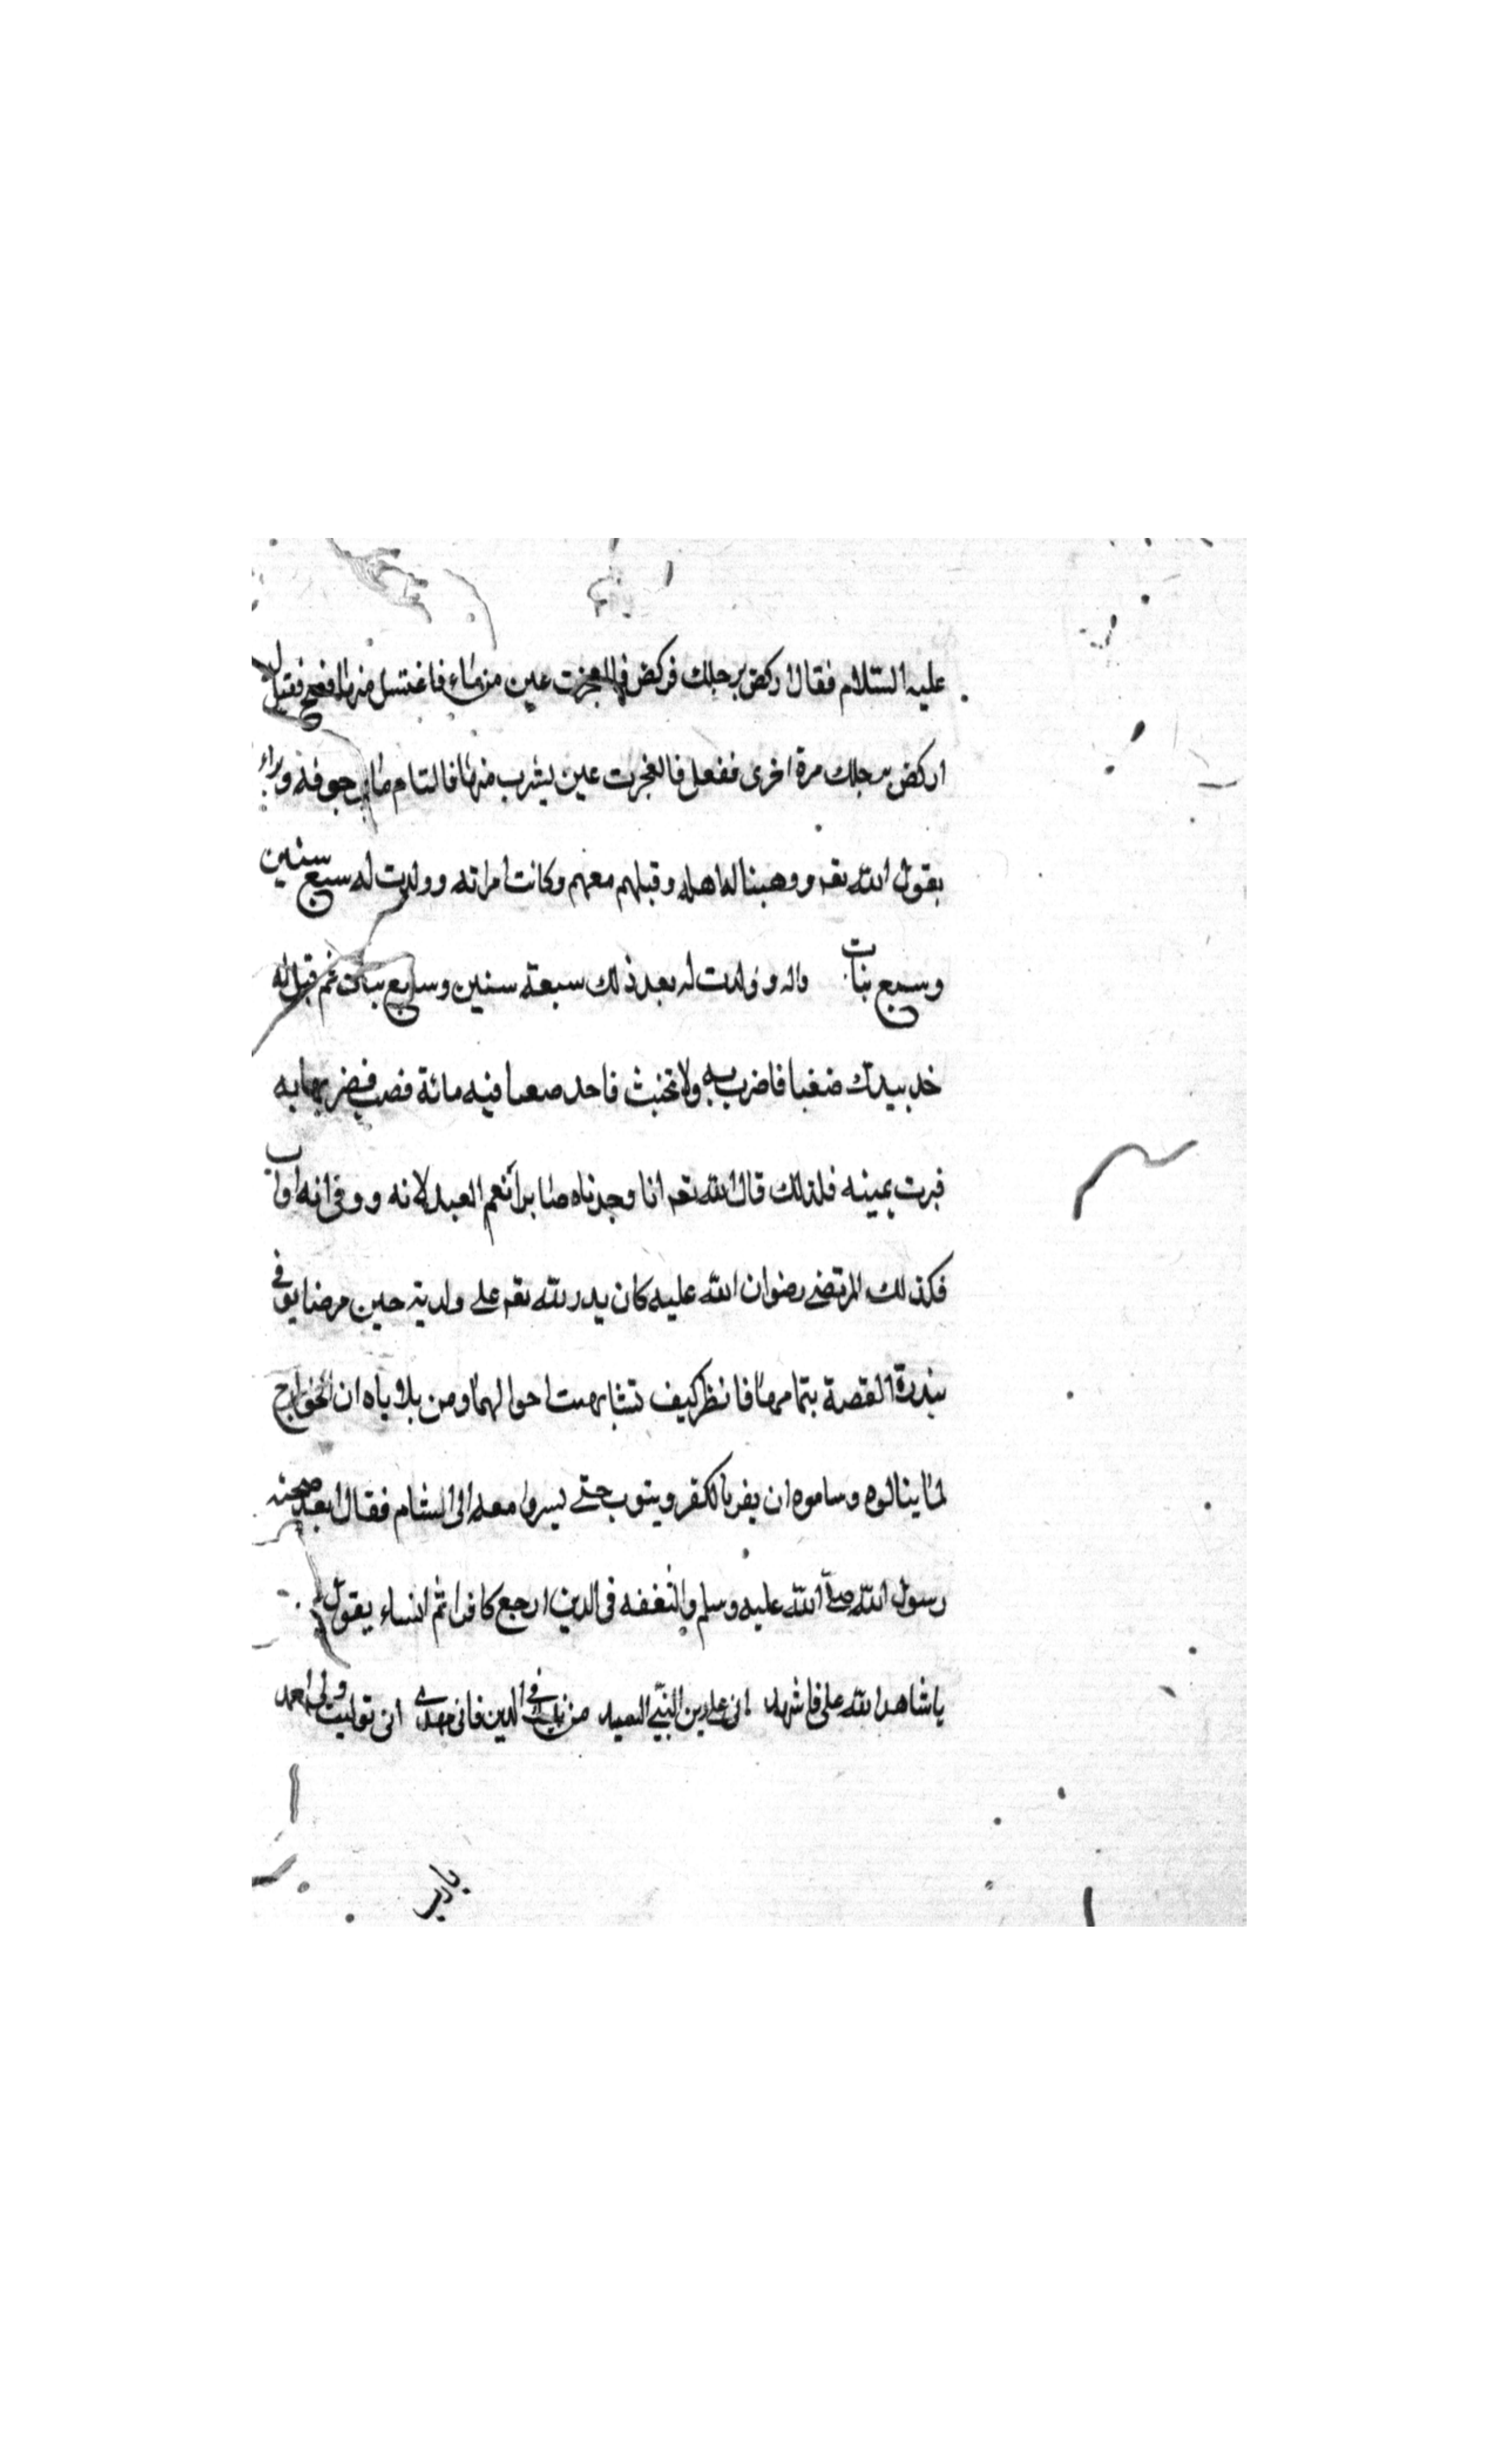 عليه السّلام فقال اركض برجلك فركض فانفجرت عين من ماء فاغتسل منها فصح فقيل
اركض برجلك مرة اخرى ففعل فانفجرت عين ليشرب منها فالتام ما في جوفه وبراء
بقول الله تعه ووهبنا له اهله وقبلهم معهم وكانت امراته وولدت له سبع سنين
وسبع بنات واله وولدت له بعد ذلك سبعة سنين وسابع بنات ثم قيل له
خد بيدك ضغبا فاضرب به ولا تحنث فاحد صعبا فيه مائة قصب فضر بها به
فبرت يمينه فلذلك قال الله تعه انا وجدناه صابرا نعم العبد لانه ووفى انه اواب
فكذلك المرتضى رضوان الله عليه كان يدر لله تعه على ولديه حين مرضا يوفى
بنذرة القصة بتمامها فانظر كيف تشابهت احوالهما ومن بلاياه ان الخوارج
لما ينالوه وساموه ان يقر بالكفر ويتوب حتى ليسروا معه الى الشام فقال ابعد صحبة
رسول الله صلى الله عليه وسلم والتفقه فى الدين ارجع كافرا ثم انساء يقول
يا شاهد الله على فاشهد انى على دين النبيّ السيد من شك فى الدين فانى مهدى انى توليت ولى احمد
يارب